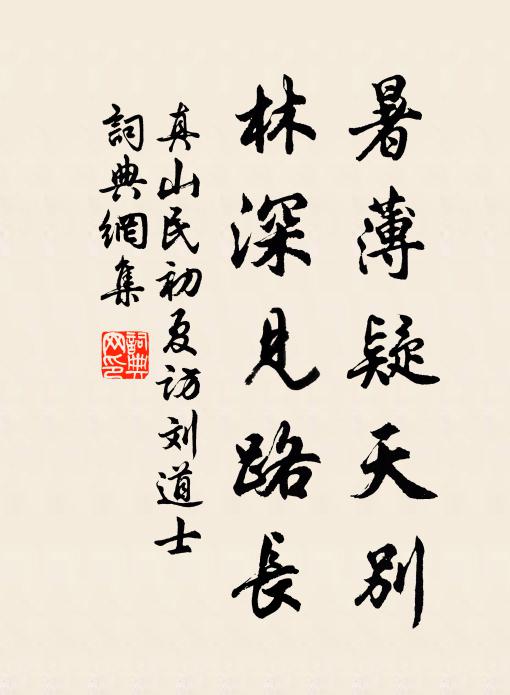 暑薄疑天别
林深見路長
真山民初夏访刘道士
詞典網集
詞典网印